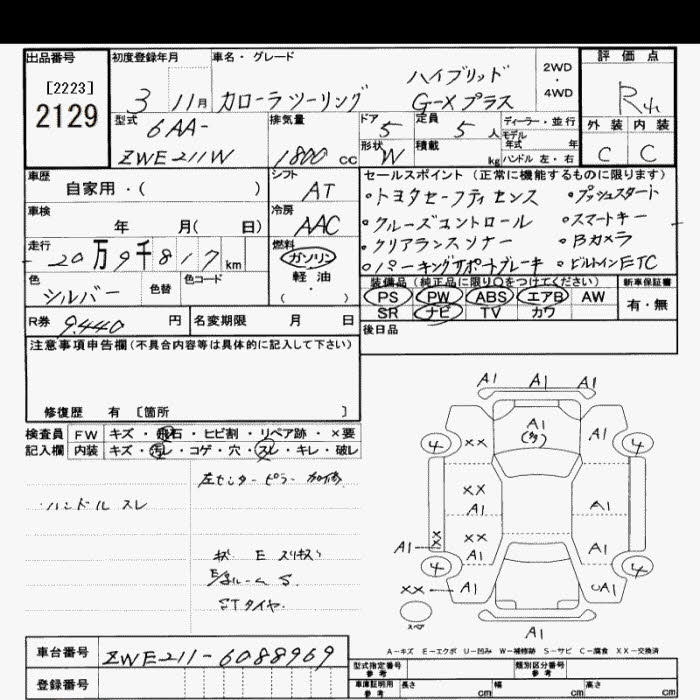 出品番号
[2223]
2129
初度登録年月
3 11月
車名・グレード
ハイブリッド
カローラツーリング G-Xプラス
2WD
・
4WD
評価点
R
外装 内装
C C
型式
6AA-
ZWE211W
排気量
1800 cc
ドア
5
定員
5 人
形状
W
積載
kg
ディーラー・並行
モデル
年式 年
ハンドル 左・右
車歴
自家用・( )
シフト
AT
車検
年 月( 日)
冷房
AAC
走行
20万9千817 km
燃料
ガソリン
軽油
( ・ )
色
シルバー
色替
色コード
R券 9.440 円
名変期限 月 日
セールスポイント(正常に機能するものに限ります)
・トヨタセーフティセンス ・プッシュスタート
・クルーズコントロール ・スマートキー
・クリアランスソナー ・Bカメラ
・パーキングサポートブレーキ ・ビルトインETC
装備品(純正品に限り○をつけてください)
PS PW ABS エアB AW
SR ナビ TV カワ
新車保証書
有・無
後日品
注意事項申告欄(不具合内容等は具体的に記入して下さい)
修復歴 有 [箇所 ]
検査員
記入欄
FW キズ・飛石・ヒビ割・リペア跡・×要
内装 キズ・汚れ・コゲ・穴・スレ・キレ・破レ
左センターピラー 加修
・ハンドル スレ
E スリキズ
E/ルーム S.
STタイヤ.
A1 A1 A1
A1
4 XX A1 4
XX
A1 A1
XX
XX
A1
A1 A1
4 4
XX A1 A1
スペア
A1
A−キズ E−エクボ U−凹み W−補修跡 S−サビ C−腐食 XX−交換済
車台番号 ZWE211-6088969
登録番号
型式指定番号
参考
類別区分番号
参考
車庫証明用
参考
長さ cm
幅 cm
高さ cm